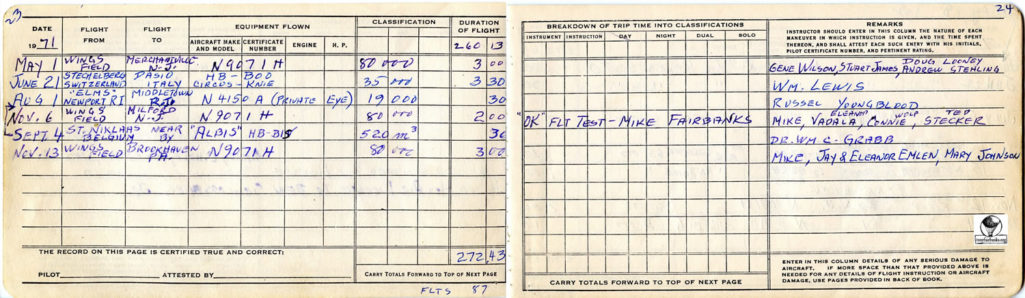 23
DATE
19 71
FLIGHT FROM
FLIGHT TO
EQUIPMENT FLOWN
AIRCRAFT MAKE AND MODEL
CERTIFICATE NUMBER
ENGINE
H. P.
CLASSIFICATION
DURATION OF FLIGHT
260 13
MAY 1 WINGS FIELD MERCHANDVILLE N.J. N9071H 80 000 3 00
JUNE 21 STECHELBERG SWITZERLAND DASIO ITALY HB-BOO CIRCUS-KNIE 35 000 3 30
AUG 1 "ELMS" NEWPORT RI MIDDLETOWN N 4150 A (PRIVATE EYE) 19 000 30
NOV. 6 WINGS FIELD MILFORD N.J. N9071H 80 000 2 00
SEPT. 4 ST. NIKLAAS BELGIUM NEAR BY "ALBIS" HB-BIS 520 m³ 30
NOV. 13 WINGS FIELD BROOKHAVEN PA. N9071H 80 000 3 00
THE RECORD ON THIS PAGE IS CERTIFIED TRUE AND CORRECT:
272 43
PILOT ATTESTED BY
CARRY TOTALS FORWARD TO TOP OF NEXT PAGE
FLTS 87
24
BREAKDOWN OF TRIP TIME INTO CLASSIFICATIONS
INSTRUMENT
INSTRUCTION
DAY
NIGHT
DUAL
SOLO
REMARKS
INSTRUCTOR SHOULD ENTER IN THIS COLUMN THE NATURE OF EACH
MANEUVER IN WHICH INSTRUCTION IS GIVEN, AND THE TIME SPENT
THEREON, AND SHALL ATTEST EACH SUCH ENTRY WITH HIS INITIALS,
PILOT CERTIFICATE NUMBER, AND PERTINENT RATING.
DOUG LOONEY
GENE WILSON, STUART JAMES, ANDREW STEHLING
WM. LEWIS
RUSSEL YOUNGBLOOD
"OK" FLT TEST - MIKE FAIRBANKS
ELEANOR WOLF TED
MIKE, VADALA, CONNIE, STECKER
DR. WM C. GRABB
MIKE, JAY & ELEANOR EMLEN, MARY JOHNSON
ENTER IN THIS COLUMN DETAILS OF ANY SERIOUS DAMAGE TO
AIRCRAFT. IF MORE SPACE THAN THAT PROVIDED ABOVE IS
NEEDED FOR ANY DETAILS OF FLIGHT INSTRUCTION OR AIRCRAFT
DAMAGE, USE PAGES PROVIDED IN BACK OF BOOK.
CARRY TOTALS FORWARD TO TOP OF NEXT PAGE